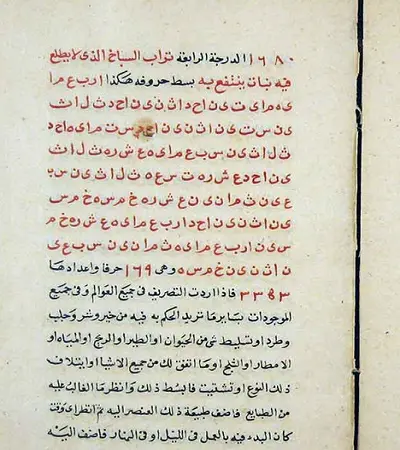 ١٦٨٠ الدرجة الرابعة تراب السباخ الذى لا يطلع
فيه نبات ينتفع به بسط حروفه هكذا ا ر ب ع م ا
ى ه م ا ى ت ى ن ا ح د ا ث ن ى ن ا ح د ث ل ا ث
ى ن س ت ى ن ا ث ن ى ن ا ح د س ت م ا ى ه ا ح د
ث ل ا ث ى ن س ب ع م ا ى ه ع ش ر ه ث ل ا ث
ى ن ا ح د ع ش ر ه س ت ى ن ث ل ا ث ى ن س ب
ع ى ن ث م ا ن ى ن ا ث ن ى ن خ م س ه خ م س
ى ن ا ث ن ى ن ا ح د ا ر ب ع م ا ى ه ع ش ر ه خ م
س ى ن ا ر ب ع م ا ى ه ث م ا ن ى ن س ب ع ى
ن ا ث ن ى ن خ م س ه وهى ١٦٩ حرفا واعدادها
٣٣٨٣ فاذا اردت التصريف فى جميع العوالم وفى جميع
الموجودات بساير ما تريد الحكم به فيه من خير وشر وجلب
وطرد او تسليط شى من الحيوان او الطير او الريح او المياه او
الامطار او الثلج او ما اتفق لك من جميع الاشيا او ايتلاف
ذلك النوع او تشتيت فابسط ذلك وانظر ما الغالب عليه
من الطبايع فاضف طبيعة ذلك العنصر اليه ثم انظر اى وقت
كان البدء فيه بالعمل فى الليل او فى النهار فاضف اليه